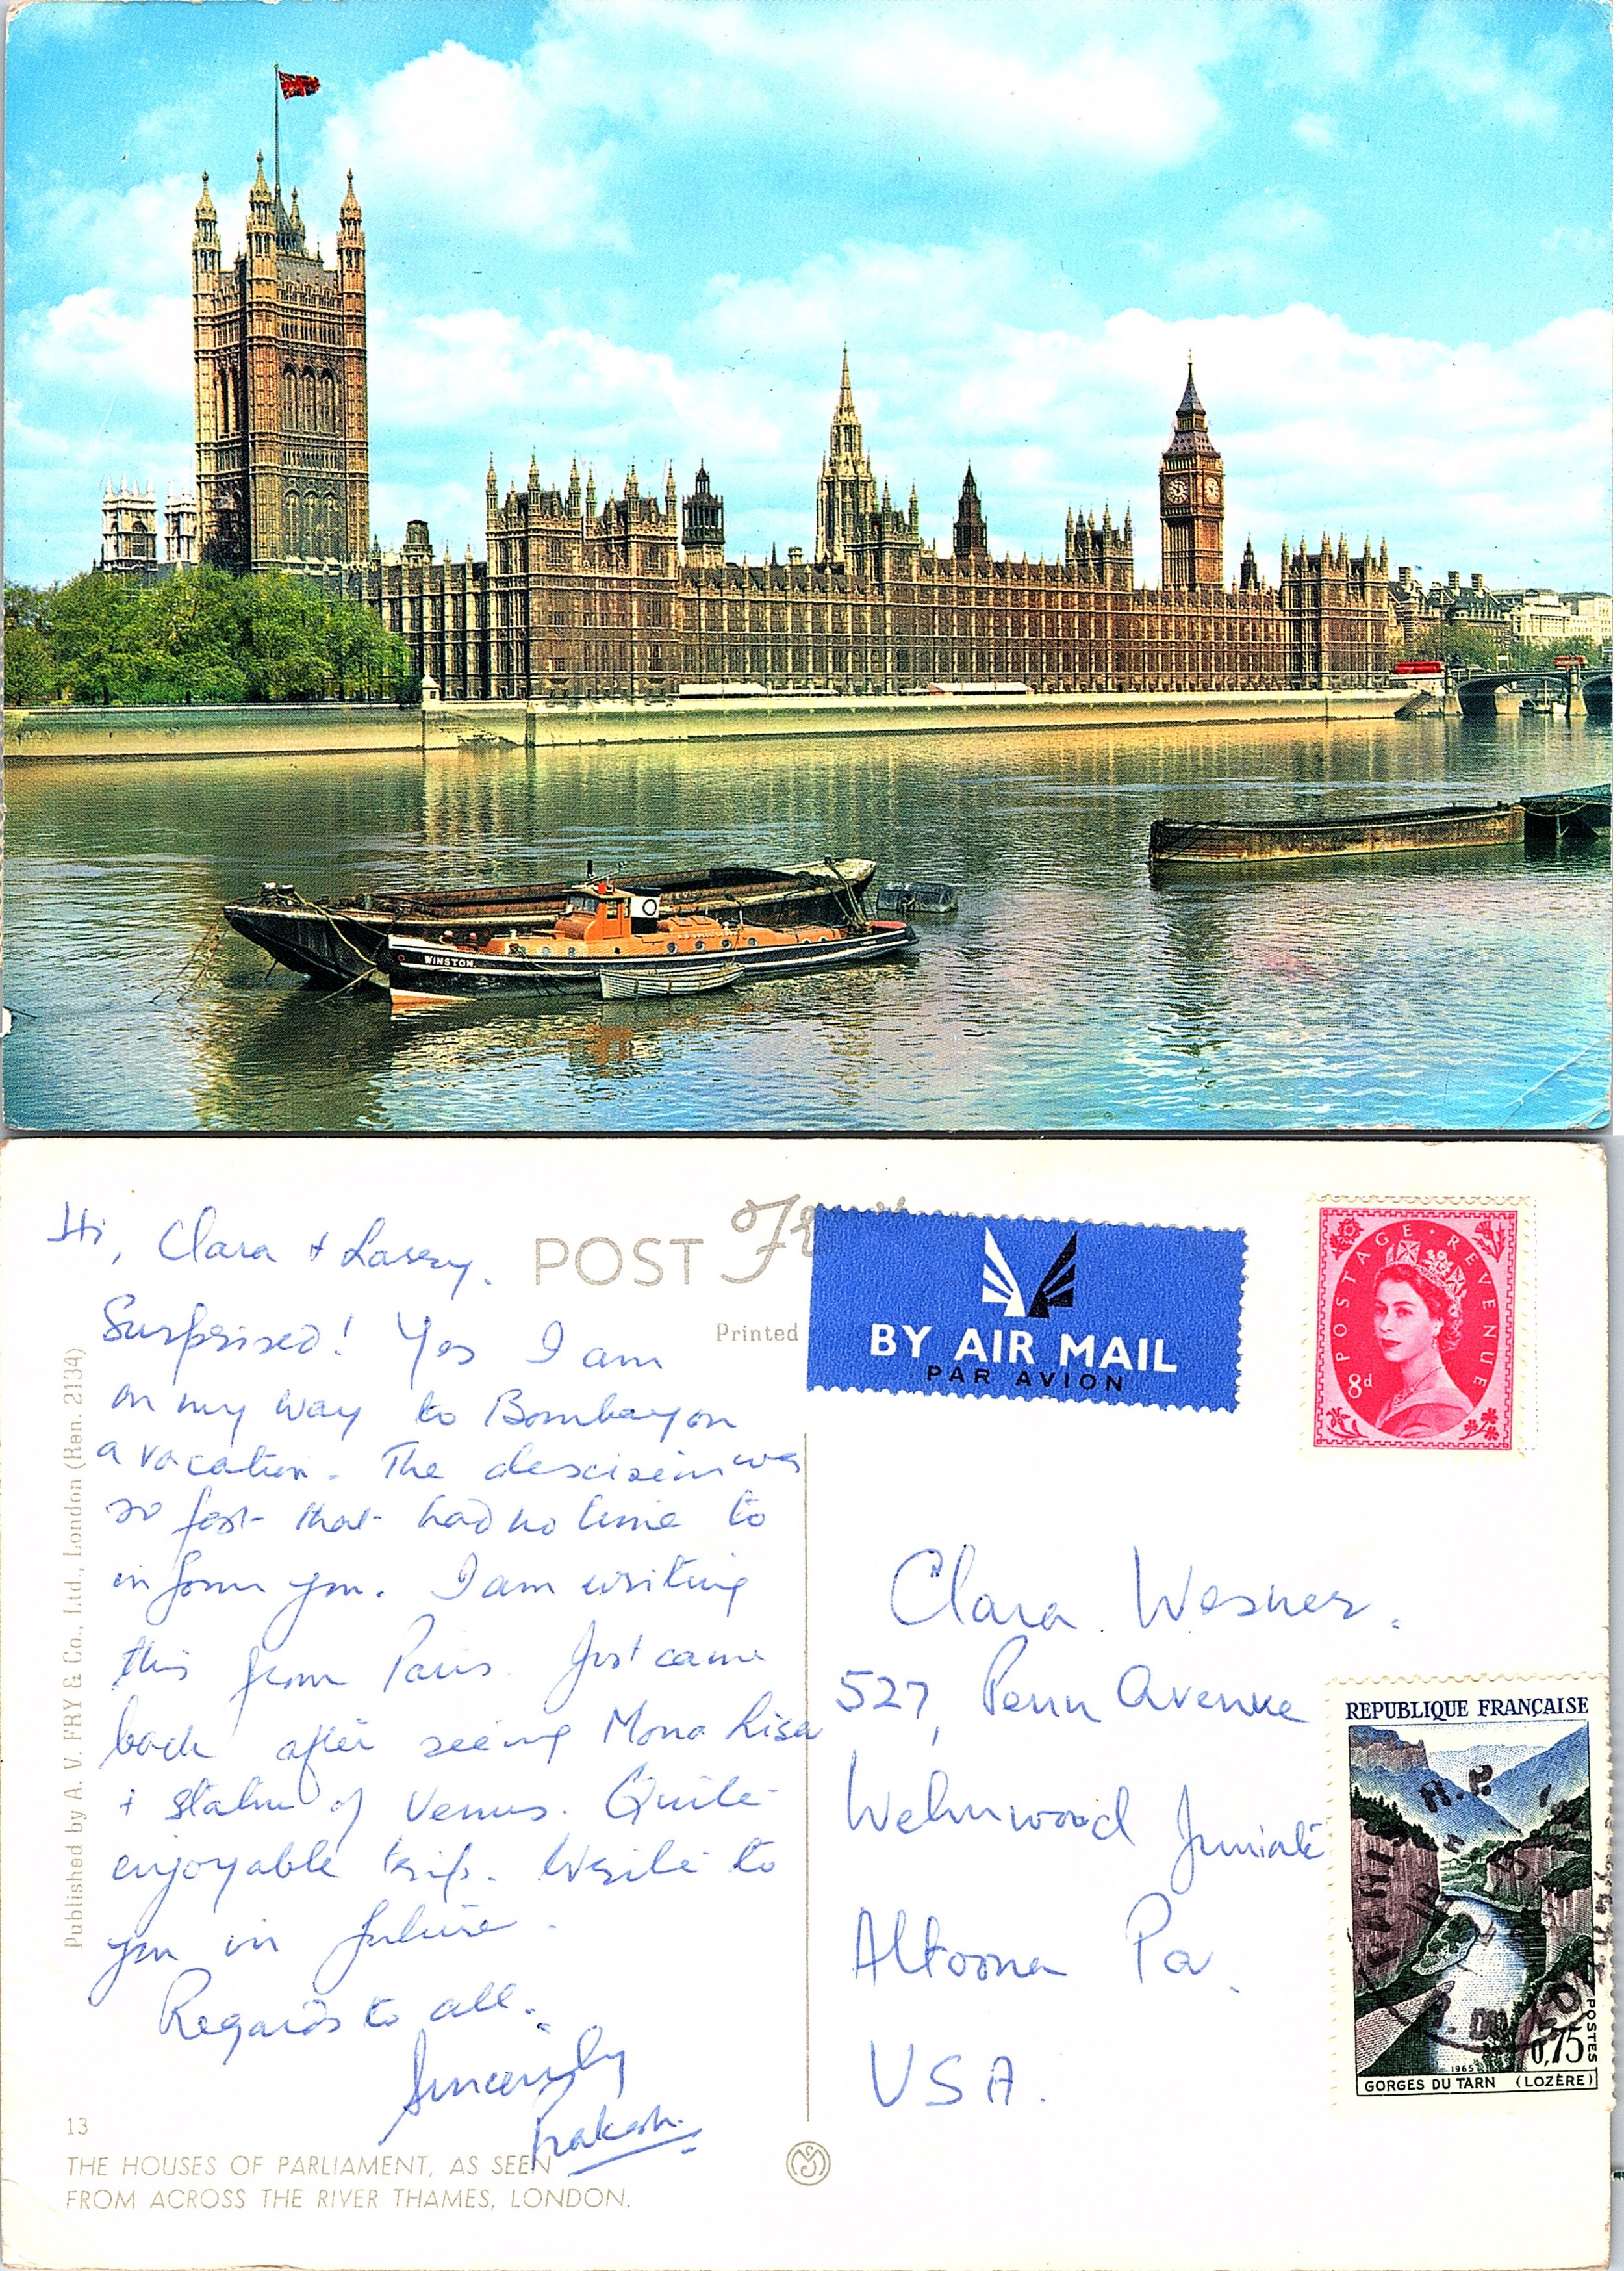 WINSTON
Hi, Clara + Larry.
Surprised! Yes I am
on my way to Bombay on
a vacation. The descision was
so fast that had no time to
inform you. I am writing
this from Paris. Just came
back after seeing Mona Lisa
+ statue of Venus. Quite
enjoyable trip. Write to
you in future.
Regards to all.
Sincerely
Prakash.
POST
Printed
BY AIR MAIL
PAR AVION
POSTAGE REVENUE
8d
Clara Wesner.
527, Penn Avenue
Wehnwood Juniata
Altoona Pa.
USA.
REPUBLIQUE FRANÇAISE
POSTES
0,75
1965
GORGES DU TARN (LOZÈRE)
Published by A. V. FRY & Co., Ltd., London (Ren. 2134)
13
THE HOUSES OF PARLIAMENT, AS SEEN
FROM ACROSS THE RIVER THAMES, LONDON.